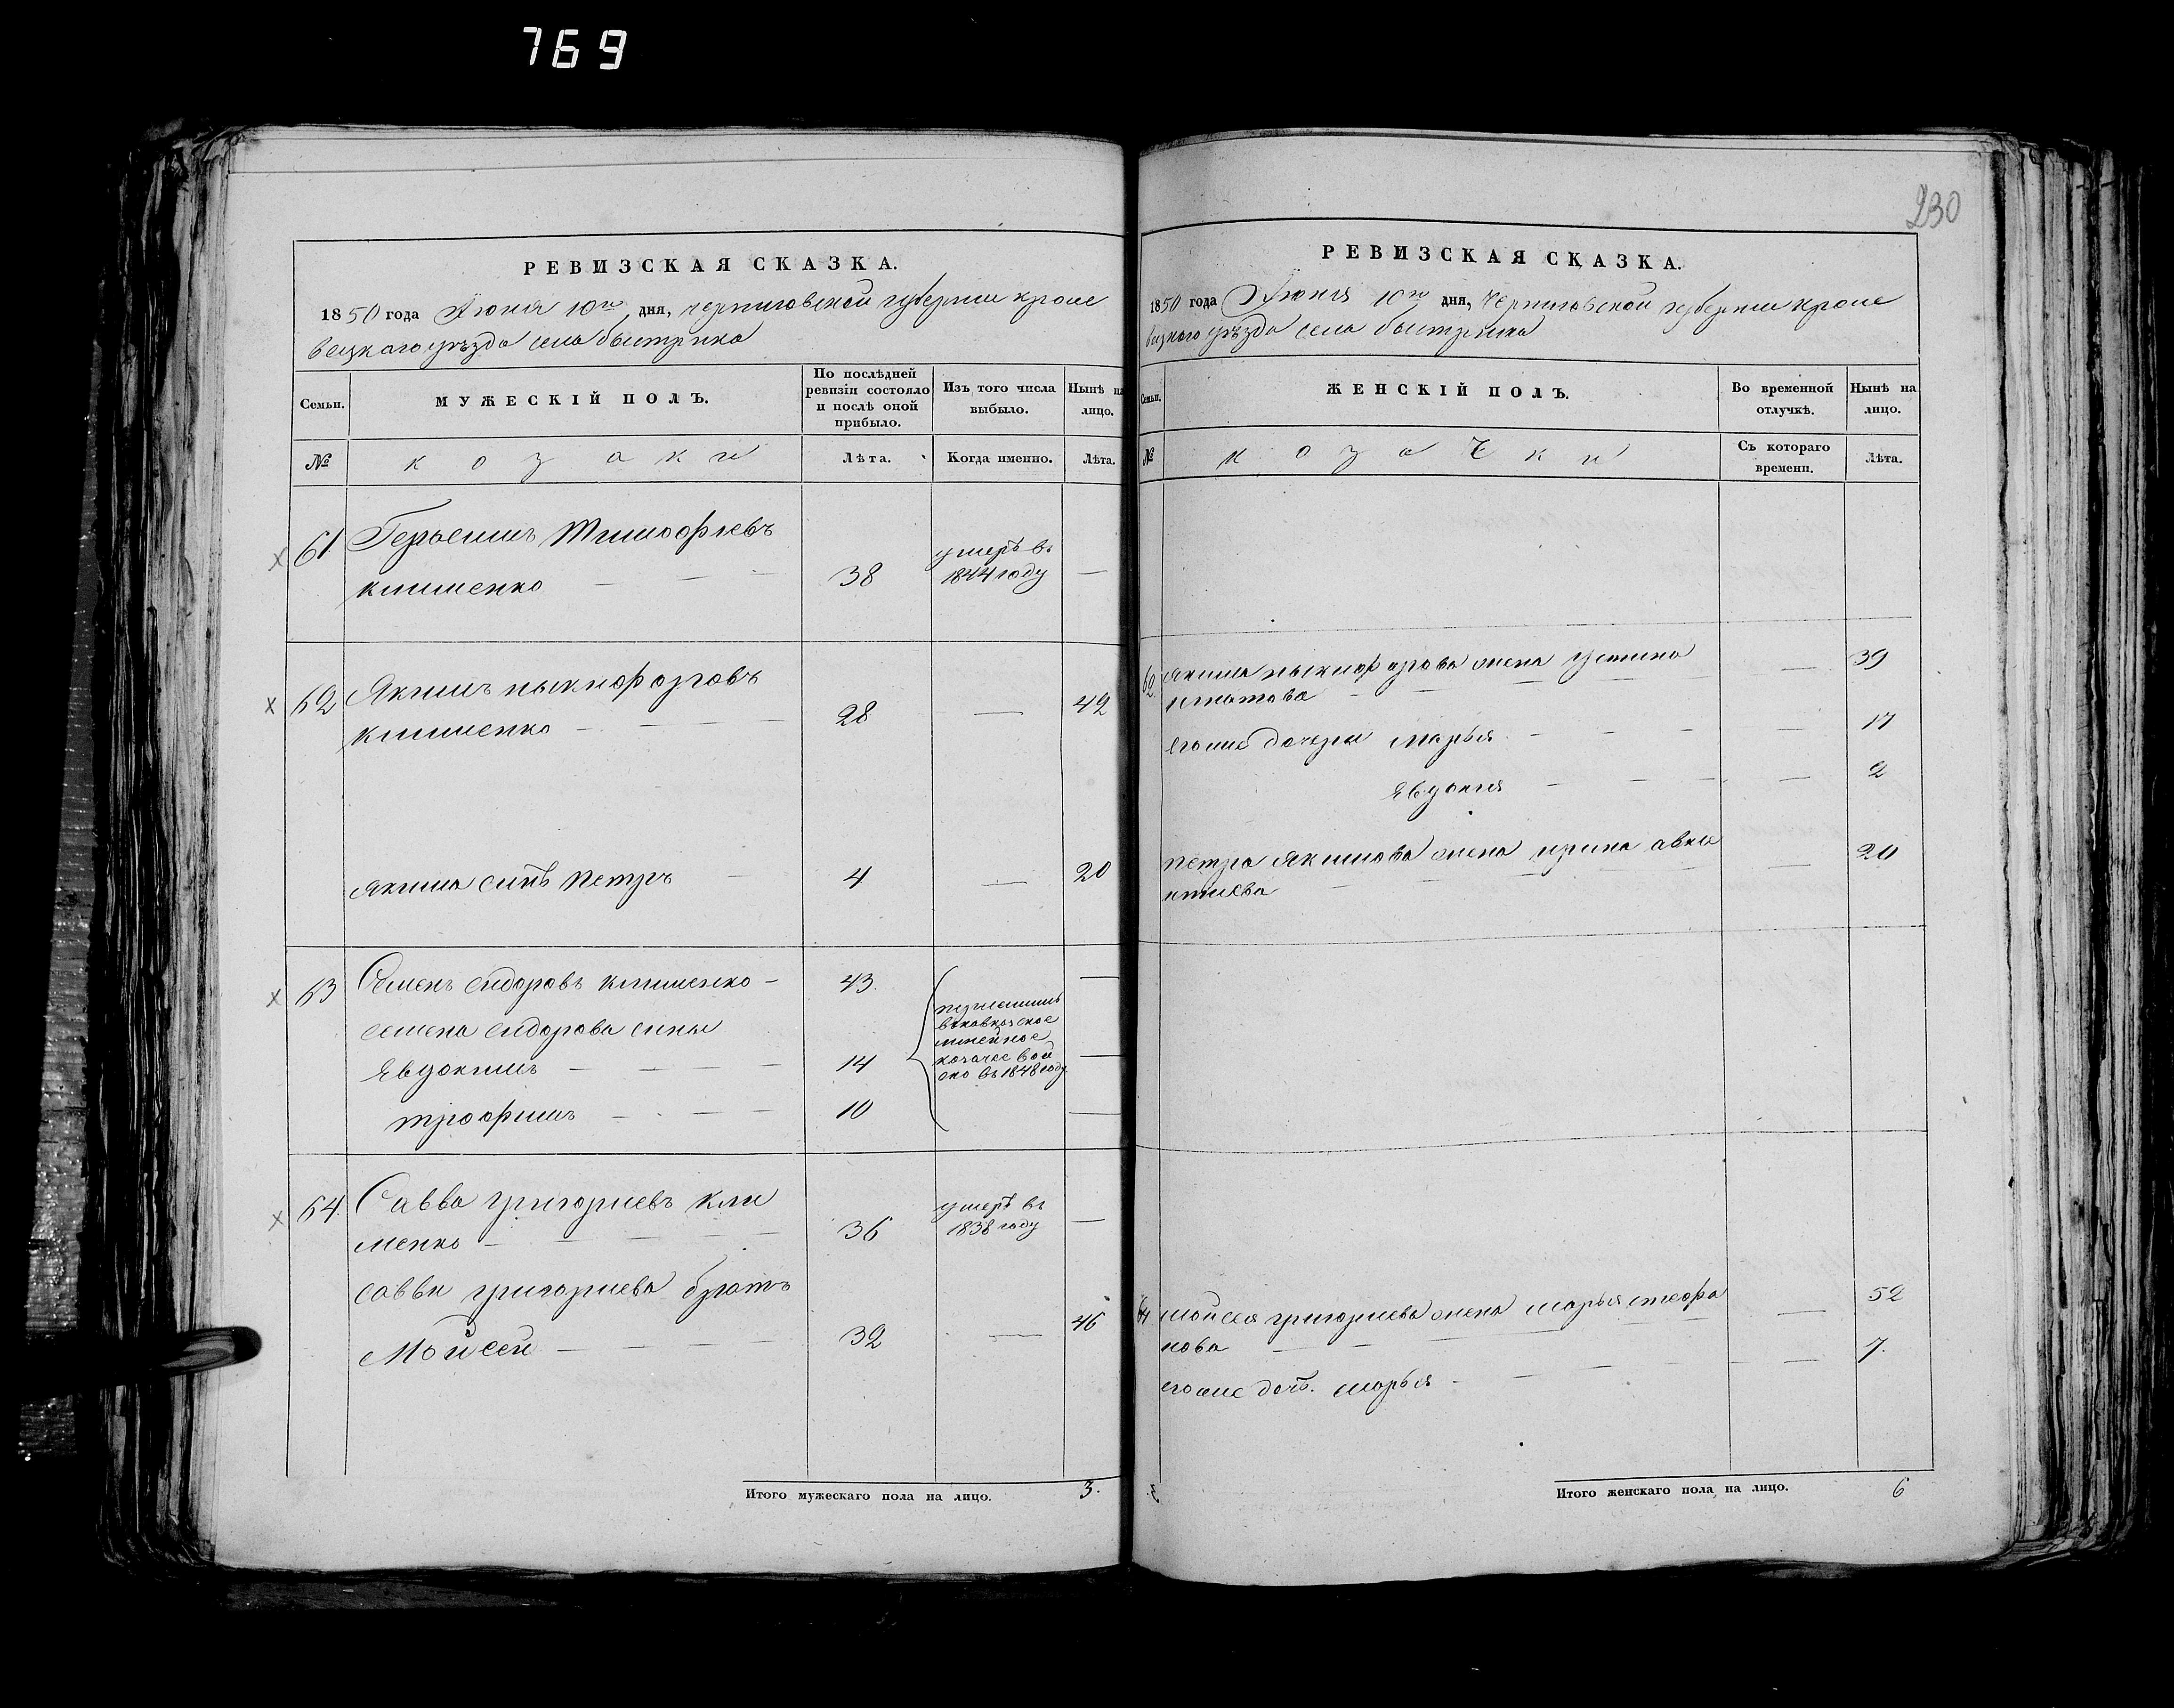 769
230
РЕВИЗСКАЯ СКАЗКА.
1850 года Июня 10го дня, Черниговской губернии Кроле
вецкаго уѣзда села быстрика
Семьи.
МУЖЕСКІЙ ПОЛЪ.
По послѣдней
ревизіи состояло
и послѣ оной
прибыло.
Изъ того числа
выбыло.
Нынѣ на
лицо.
№
козаки
Лѣта.
Когда именно.
Лѣта.
61 Герасимъ Тимофѣевъ
клименко 38 умеръ въ
1844 году
62 Якимъ ныкифоровъ
клименко 28 — 42
якима синъ Петръ 4 — 20
63 Семенъ сидоровъ клименко 43
семена сидорова сины
Явдокимъ 14
трофимъ 10
въ кавказское
линейное
козачее вой
ско въ 1848 году
64 Савва григориевъ кли
менко 36 умеръ въ
1838 году
саввы григориева братъ
Мойсей 32 — 46
Итого мужескаго пола на лицо. 3.
РЕВИЗСКАЯ СКАЗКА.
1850 года Июня 10го дня, Черниговской губернии Кроле
вецкого уѣзда села быстрика
Семьи.
ЖЕНСКІЙ ПОЛЪ.
Во временной
отлучкѣ.
Нынѣ на
лицо.
№
козачки
Съ котораго
времени.
Лѣта.
62 Якима ныкифорова жена устина — 39
игнатова
егоже дочери марья — 17
явдокия — 2
петра якимова жена ирина авкс — 20
нтиева
64 мойсея григориева жена марья стефа — 52
нова
егоже дочь марья — 7.
Итого женскаго пола на лицо. 6